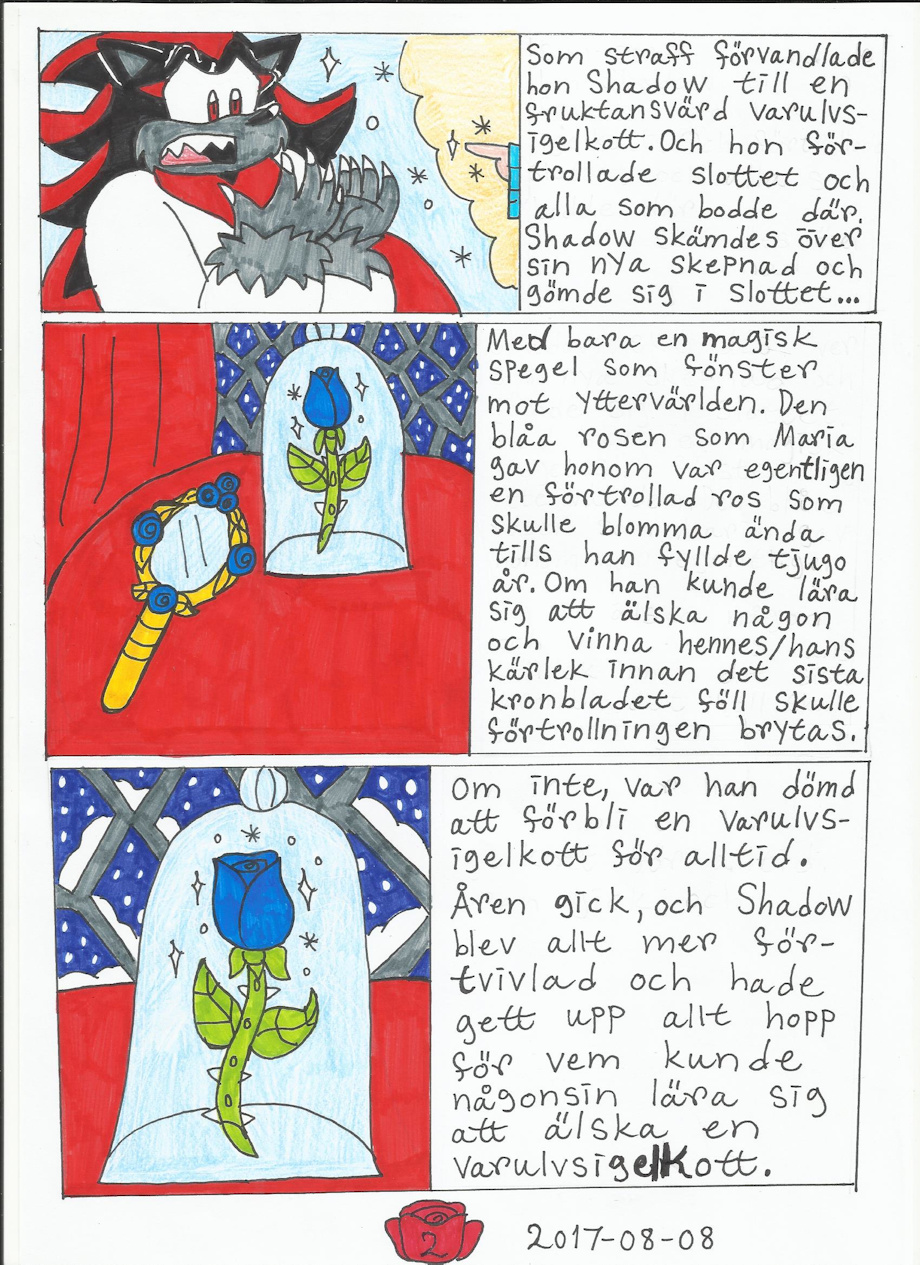 Som straff förvandlade
hon Shadow till en
fruktansvärd varulvs-
igelkott. Och hon för-
trollade slottet och
alla som bodde där.
Shadow skämdes över
sin nya skepnad och
gömde sig i slottet...
Med bara en magisk
spegel som fönster
mot yttervärlden. Den
blåa rosen som Maria
gav honom var egentligen
en förtrollad ros som
skulle blomma ända
tills han fyllde tjugo
år. Om han kunde lära
sig att älska någon
och vinna hennes/hans
kärlek innan det sista
kronbladet föll skulle
förtrollningen brytas.
Om inte, var han dömd
att förbli en varulvs-
igelkott för alltid.
Åren gick, och Shadow
blev allt mer för-
tvivlad och hade
gett upp allt hopp
för vem kunde
någonsin lära sig
att älska en
varulvsigelkott.
2
2017-08-08